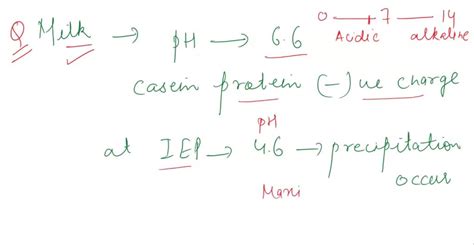 Q Milk → pH → 6.6 0 — 7 — 14
Acidic alkaline
casein protein (-)ve charge
pH
at IEP → 4.6 → precipitation
occur
Maxi